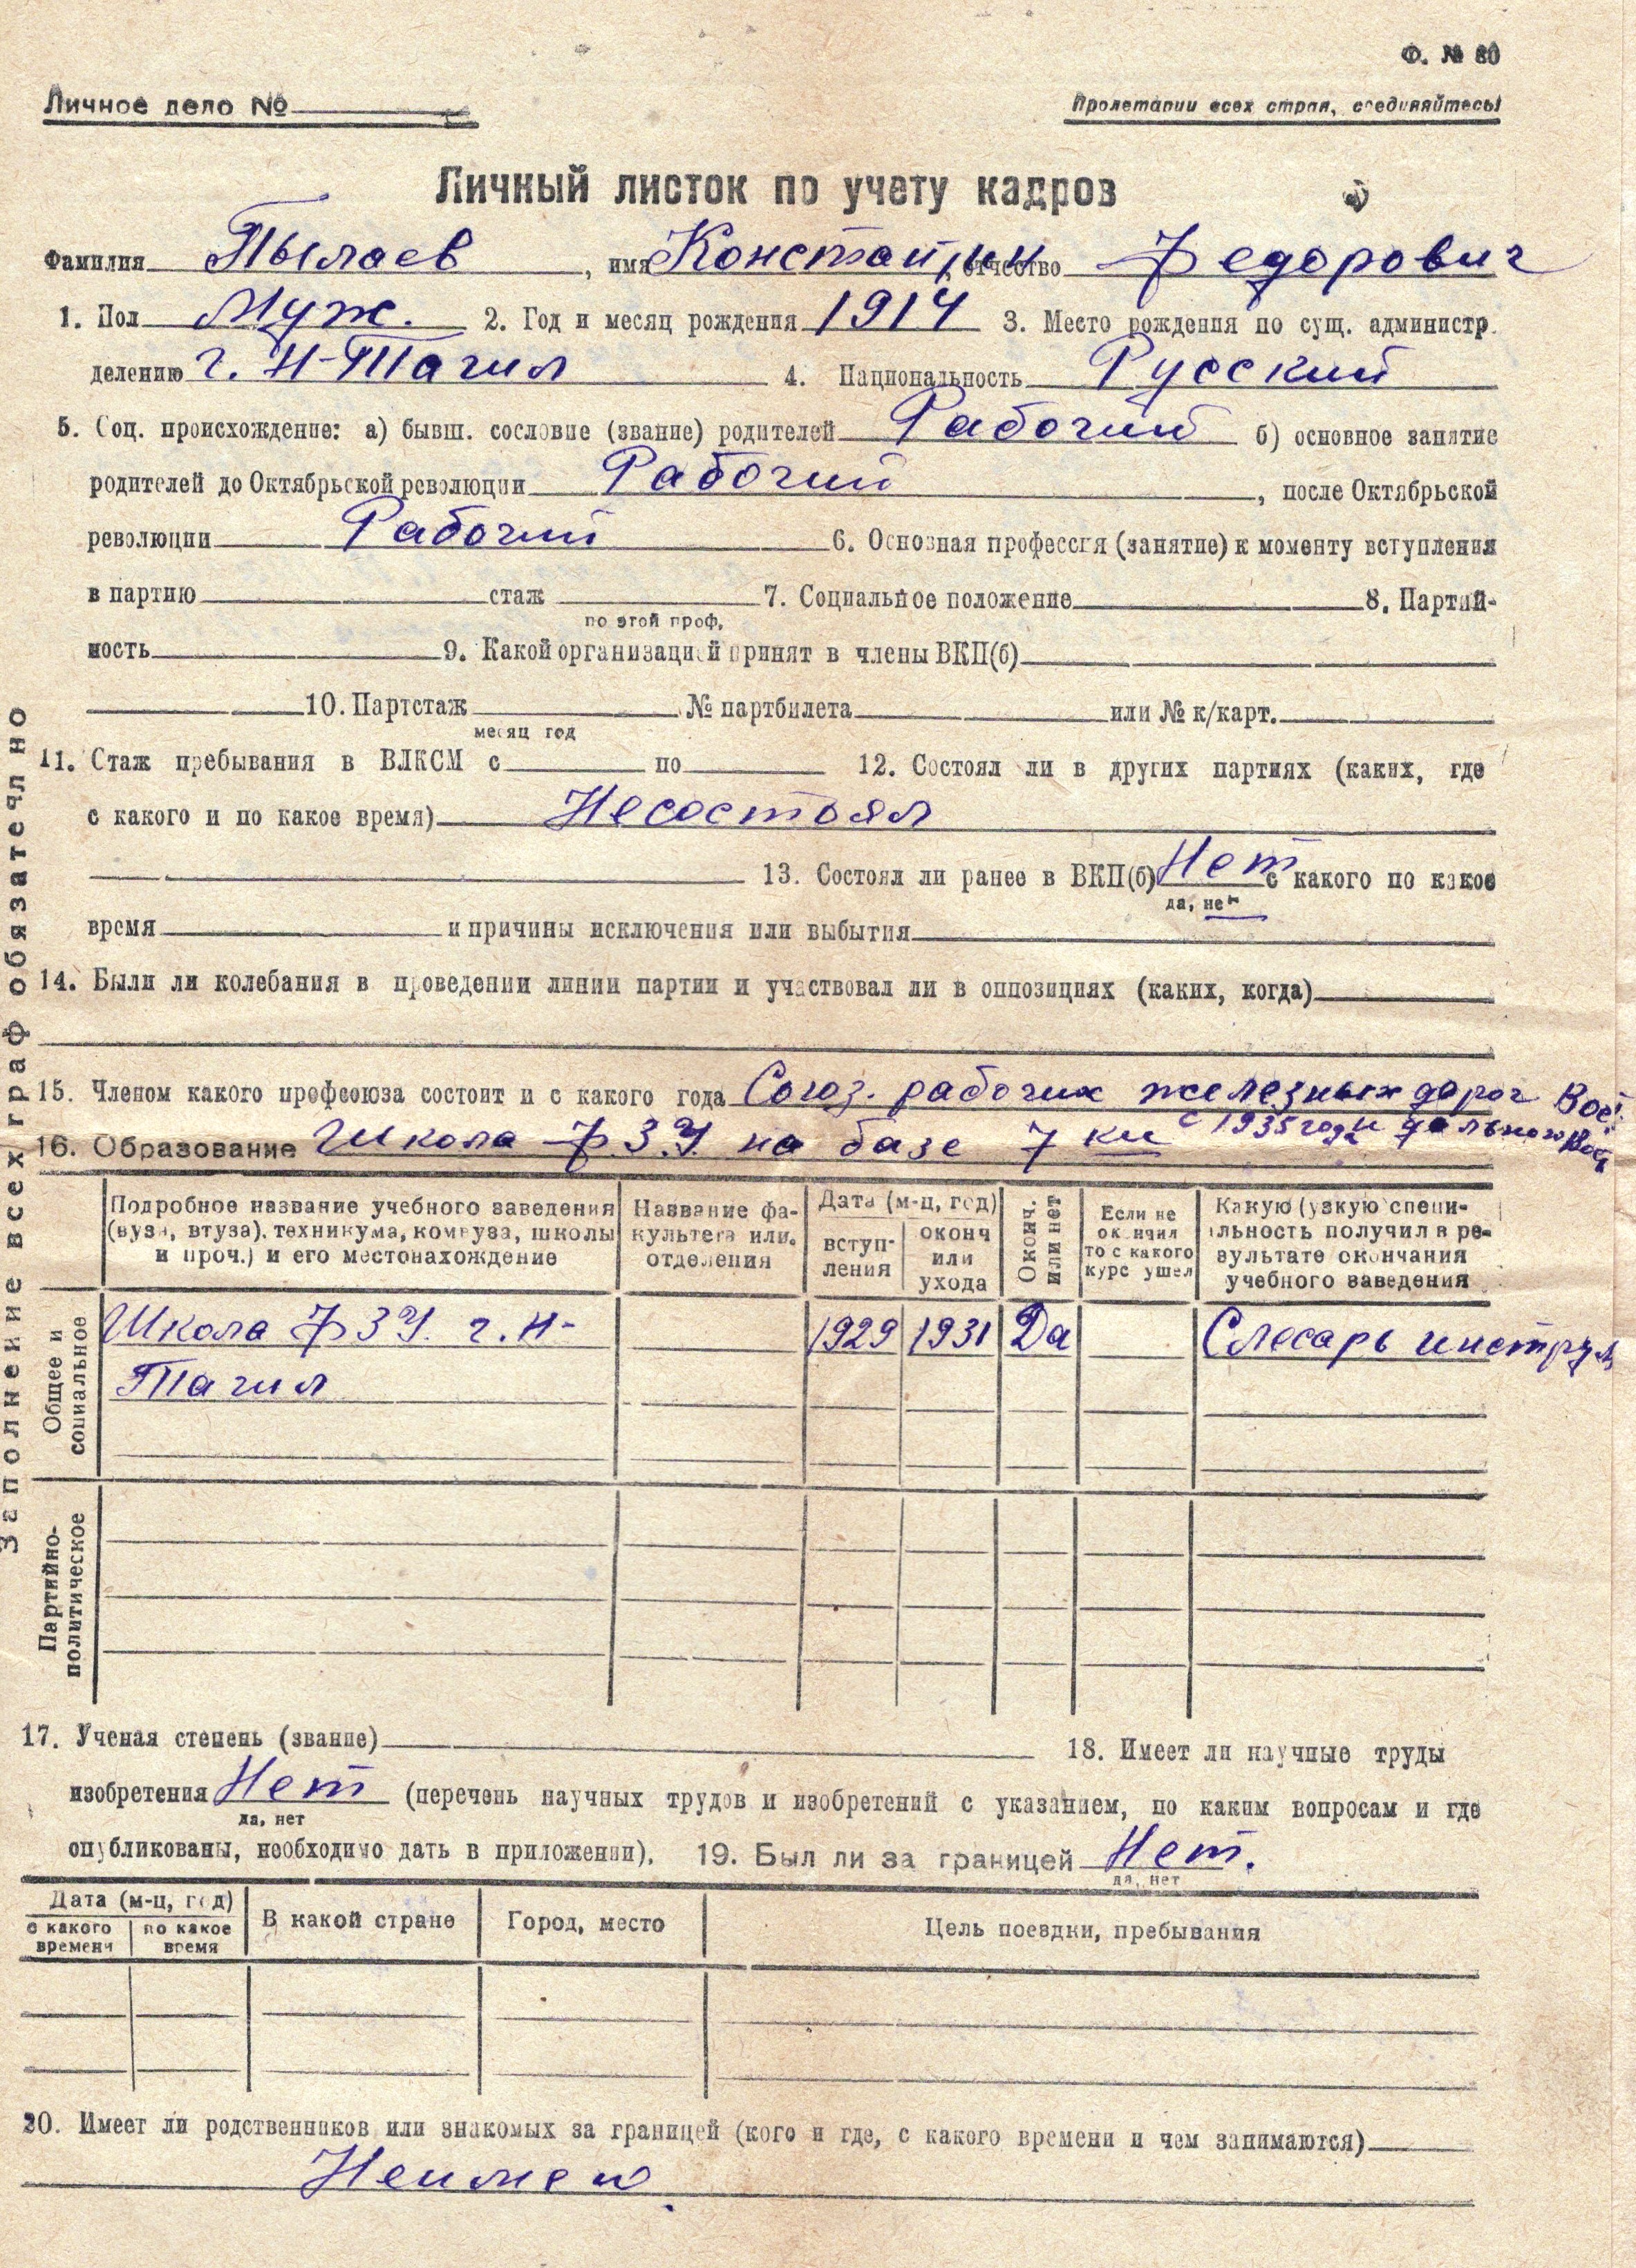 Ф. № 80
Личное дело №
Пролетарии всех стран, соединяйтесь!
Личный листок по учету кадров
Фамилия Пылаев, имя Константин, отчество Федорович
1. Пол Муж. 2. Год и месяц рождения 1914 3. Место рождения по сущ. администр.
делению г. Н-Тагил 4. Национальность Русский
5. Соц. происхождение: а) бывш. сословие (звание) родителей Рабочий б) основное занятие
родителей до Октябрьской революции Рабочий, после Октябрьской
революции Рабочий 6. Основная профессия (занятие) к моменту вступления
в партию стаж 7. Социальное положение 8. Партий-
по этой проф.
ность 9. Какой организацией принят в члены ВКП(б)
10. Партстаж № партбилета или № к/карт.
месяц год
11. Стаж пребывания в ВЛКСМ с по 12. Состоял ли в других партиях (каких, где
с какого и по какое время) Несостоял
13. Состоял ли ранее в ВКП(б) Нет с какого по какое
да, нет
время и причины исключения или выбытия
14. Были ли колебания в проведении линии партии и участвовал ли в оппозициях (каких, когда)
15. Членом какого профсоюза состоит и с какого года Союз. рабочих железных дорог Вос.
с 1935 года и Дальнего Вост
16. Образование Школа ФЗУ на базе 7 кл
Подробное название учебного заведения (вуза, втуза), техникума, комвуза, школы и проч.) и его местонахождение
Название факультета или отделения
Дата (м-ц, год)
вступ-ления
оконч или ухода
Оконч. или нет
Если не окончил то с какого курс ушел
Какую (узкую) специ-альность получил в ре-зультате окончания учебного заведения
Общее и социальное
Школа ФЗУ. г. Н- 1929 1931 Да Слесарь инструм
Тагил
Партийно-политическое
17. Ученая степень (звание) 18. Имеет ли научные труды
изобретения Нет (перечень научных трудов и изобретений с указанием, по каким вопросам и где
да, нет
опубликованы, необходимо дать в приложении). 19. Был ли за границей Нет.
да, нет
Дата (м-ц, год)
с какого времени
по какое время
В какой стране
Город, место
Цель поездки, пребывания
20. Имеет ли родственников или знакомых за границей (кого и где, с какого времени и чем занимаются)
Неимею.
Заполнение всех граф обязательно